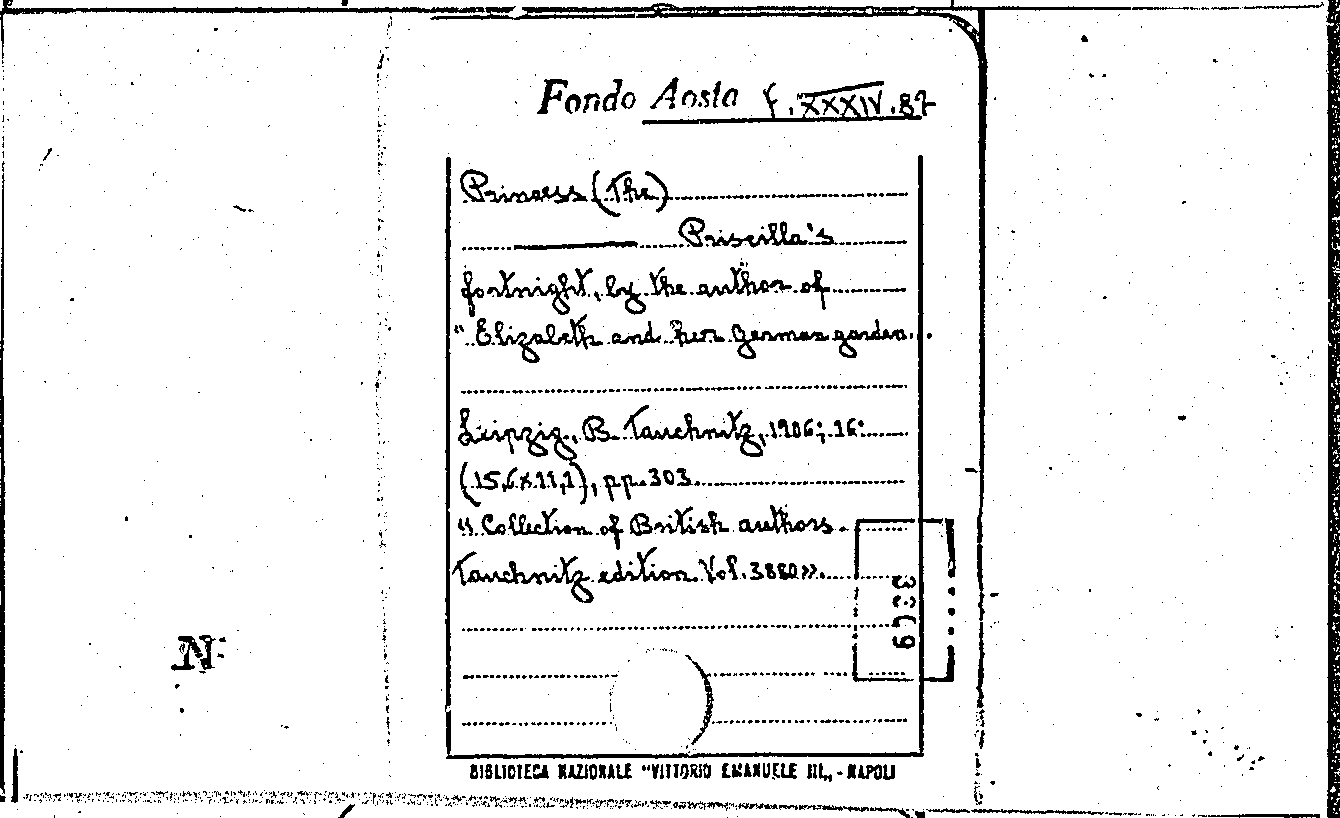 Fondo Aosta f. XXXIV. 87
Princess (The)
Priscilla's
fortnight, by the author of
"Elizabeth and her German garden.."
Leipzig, B. Tauchnitz, 1906; 16:
(15,6x11,1), pp. 303
"Collection of British authors.
Tauchnitz edition. Vol. 3880».
N
BIBLIOTECA NAZIONALE "VITTORIO EMANUELE III„ - NAPOLI